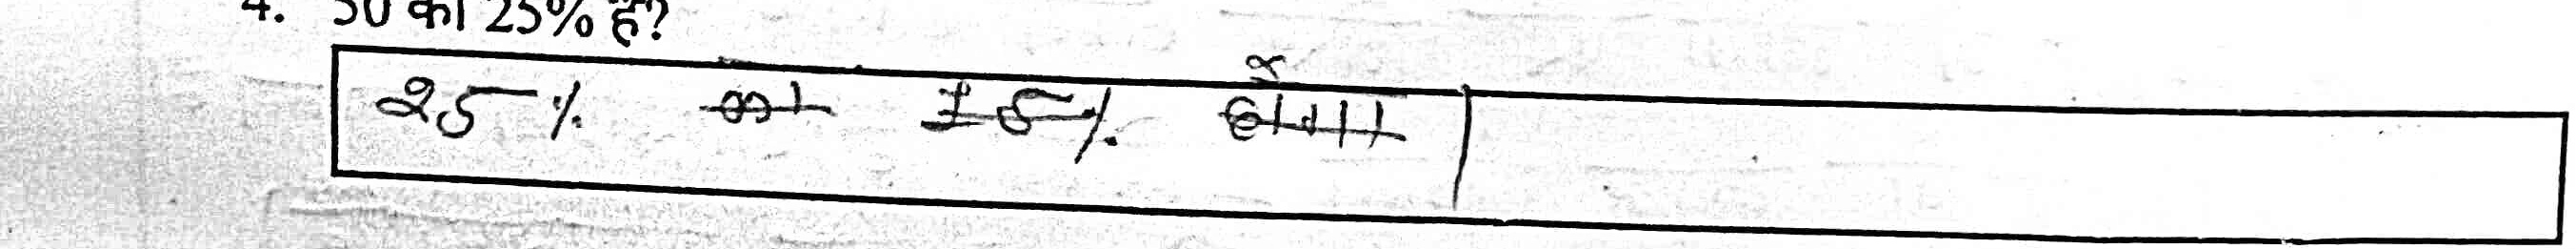 4. 50 का 25% है?
25% का 75% होगा |